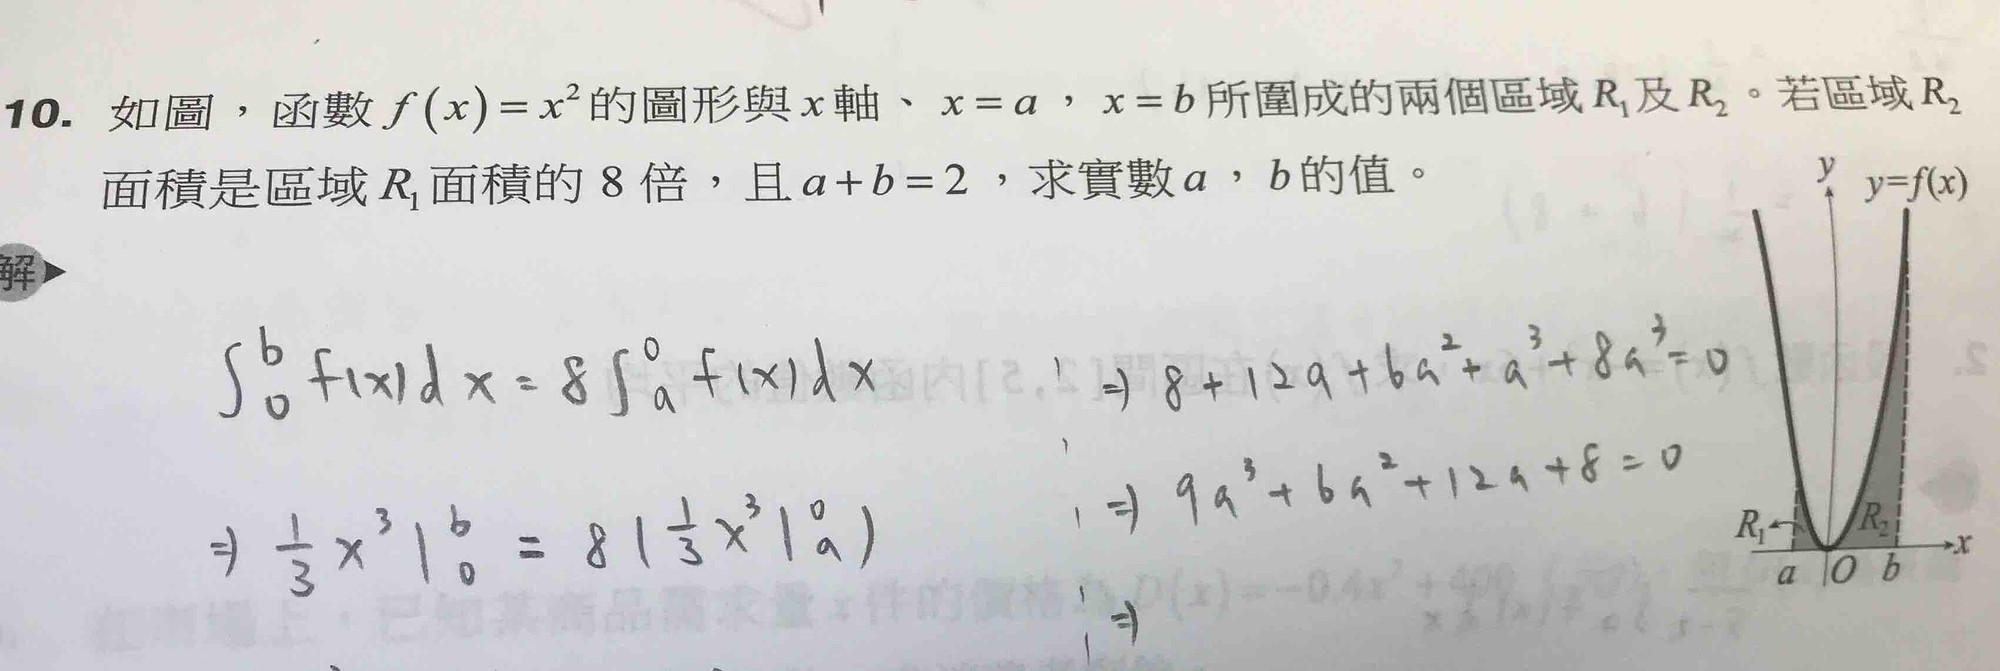 10. 如圖，函數 f(x) = x² 的圖形與 x 軸、x = a，x = b 所圍成的兩個區域 R₁ 及 R₂。若區域 R₂
面積是區域 R₁ 面積的 8 倍，且 a + b = 2，求實數 a，b 的值。
解
∫₀ᵇ f(x)dx = 8∫ₐ⁰ f(x)dx
⇒ 1/3 x³ |₀ᵇ = 8(1/3 x³ |ₐ⁰)
⇒ 8+12a+6a²+a³+8a³=0
⇒ 9a³+6a²+12a+8=0
⇒
y
y=f(x)
R₁
R₂
x
a O b